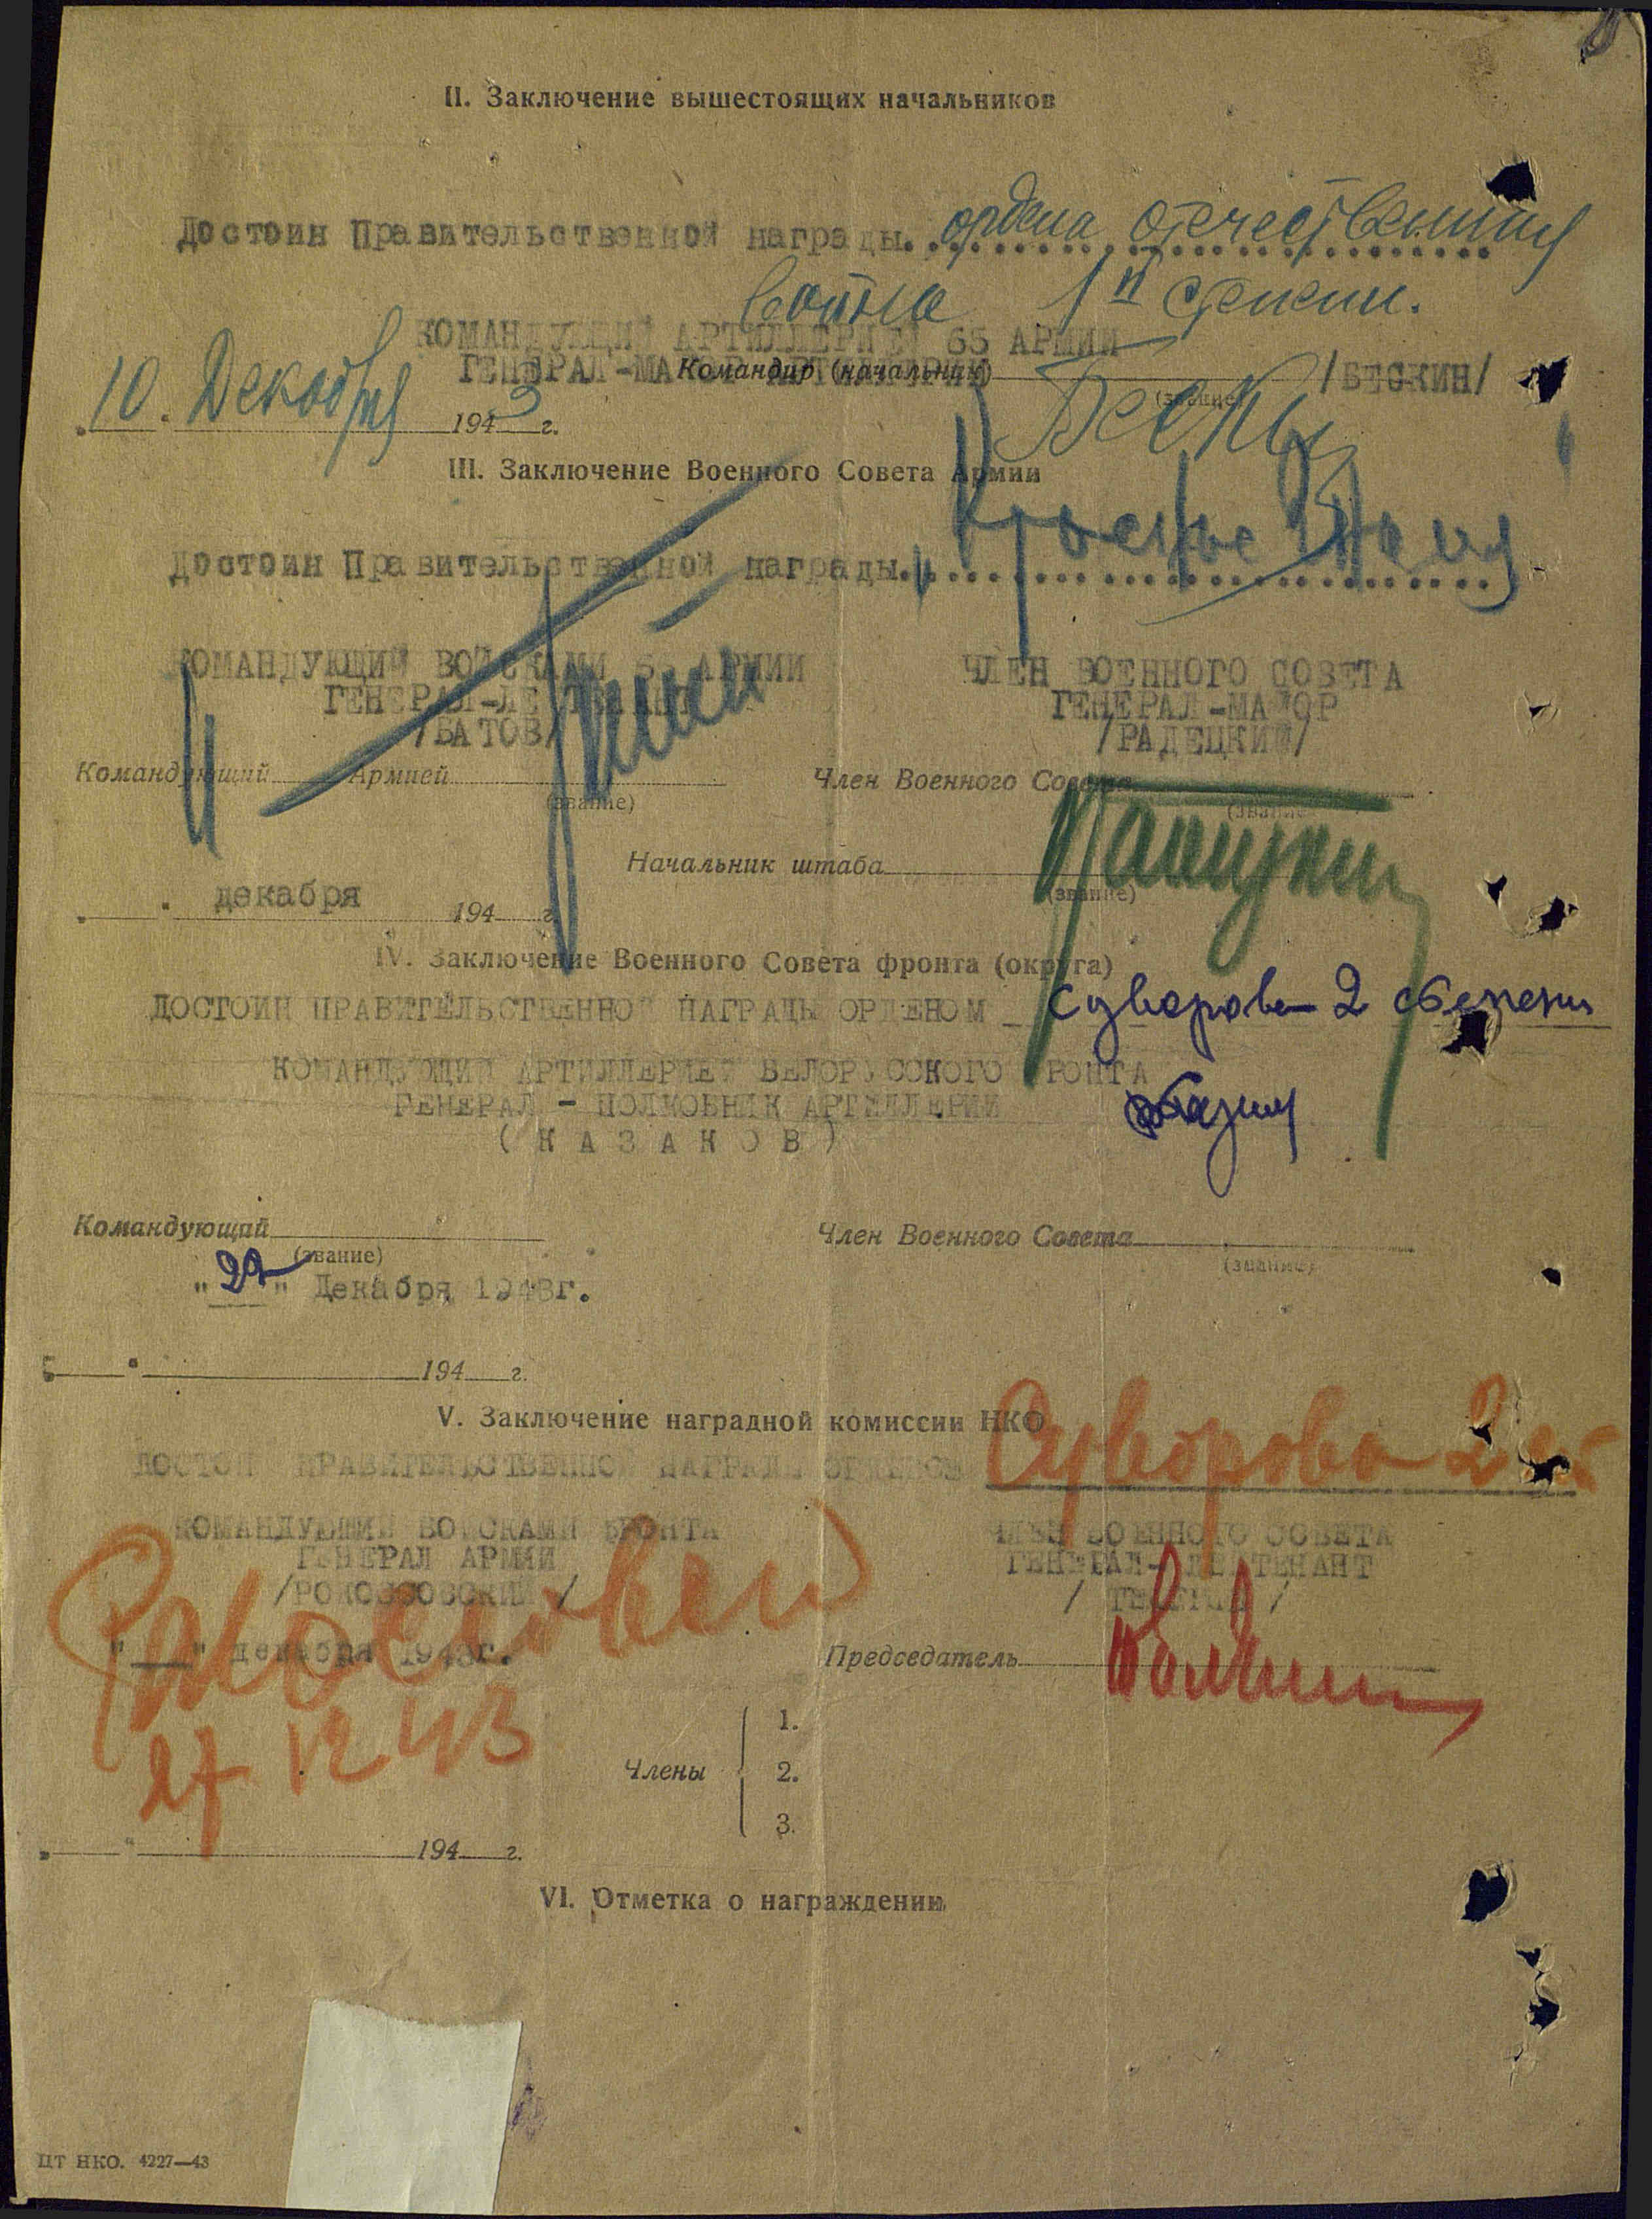 II. Заключение вышестоящих начальников
Достоин Правительственной награды. ордена отечественную
война 1й степени.
КОМАНДУЮЩИЙ АРТИЛЛЕРИЕЙ 65 АРМИИ
ГЕНЕРАЛ-МАЙОР АРТИЛЛЕРИИ
Командир (начальник) /БЕСКИН/
(звание)
Бескин
„10.“ Декабря 1943 г.
III. Заключение Военного Совета Армии
Красное Знамя
Достоин Правительственной награды.
КОМАНДУЮЩИЙ ВОЙСКАМИ 65 АРМИИ ЧЛЕН ВОЕННОГО СОВЕТА
ГЕНЕРАЛ-ЛЕЙТЕНАНТ ГЕНЕРАЛ-МАЙОР
/БАТОВ/ /РАДЕЦКИЙ/
Командующий Армией Член Военного Совета
(звание) (звание)
Начальник штаба
(звание)
„ “ декабря 194 г.
IV. Заключение Военного Совета фронта (округа)
ДОСТОИН ПРАВИТЕЛЬСТВЕННОЙ НАГРАДЫ ОРДЕНОМ Суворова 2 степени
КОМАНДУЮЩИЙ АРТИЛЛЕРИЕЙ БЕЛОРУССКОГО ФРОНТА
ГЕНЕРАЛ - ПОЛКОВНИК АРТИЛЛЕРИИ
( К А З А К О В )
Командующий Член Военного Совета
(звание) (звание)
"22" Декабря 1943г.
„ “ 194 г.
V. Заключение наградной комиссии НКО
ДОСТОИН ПРАВИТЕЛЬСТВЕННОЙ НАГРАДЫ ОРДЕНОМ Суворова 2 ст
КОМАНДУЮЩИЙ ВОЙСКАМИ ФРОНТА ЧЛЕН ВОЕННОГО СОВЕТА
ГЕНЕРАЛ АРМИИ ГЕНЕРАЛ-ЛЕЙТЕНАНТ
/РОКОССОВСКИЙ/ / ТЕЛЕГИН /
Рокоссовский
" " декабря 1943г.
Председатель
27 12 43
1.
Члены 2.
3.
„ “ 194 г.
VI. Отметка о награждении
ЦТ НКО. 4227—43